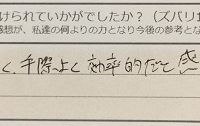 けられていかがでしたか？（ズバリ
感想が、私達の何よりの力となり今後の参考とな
く、手際よく効率的だと感